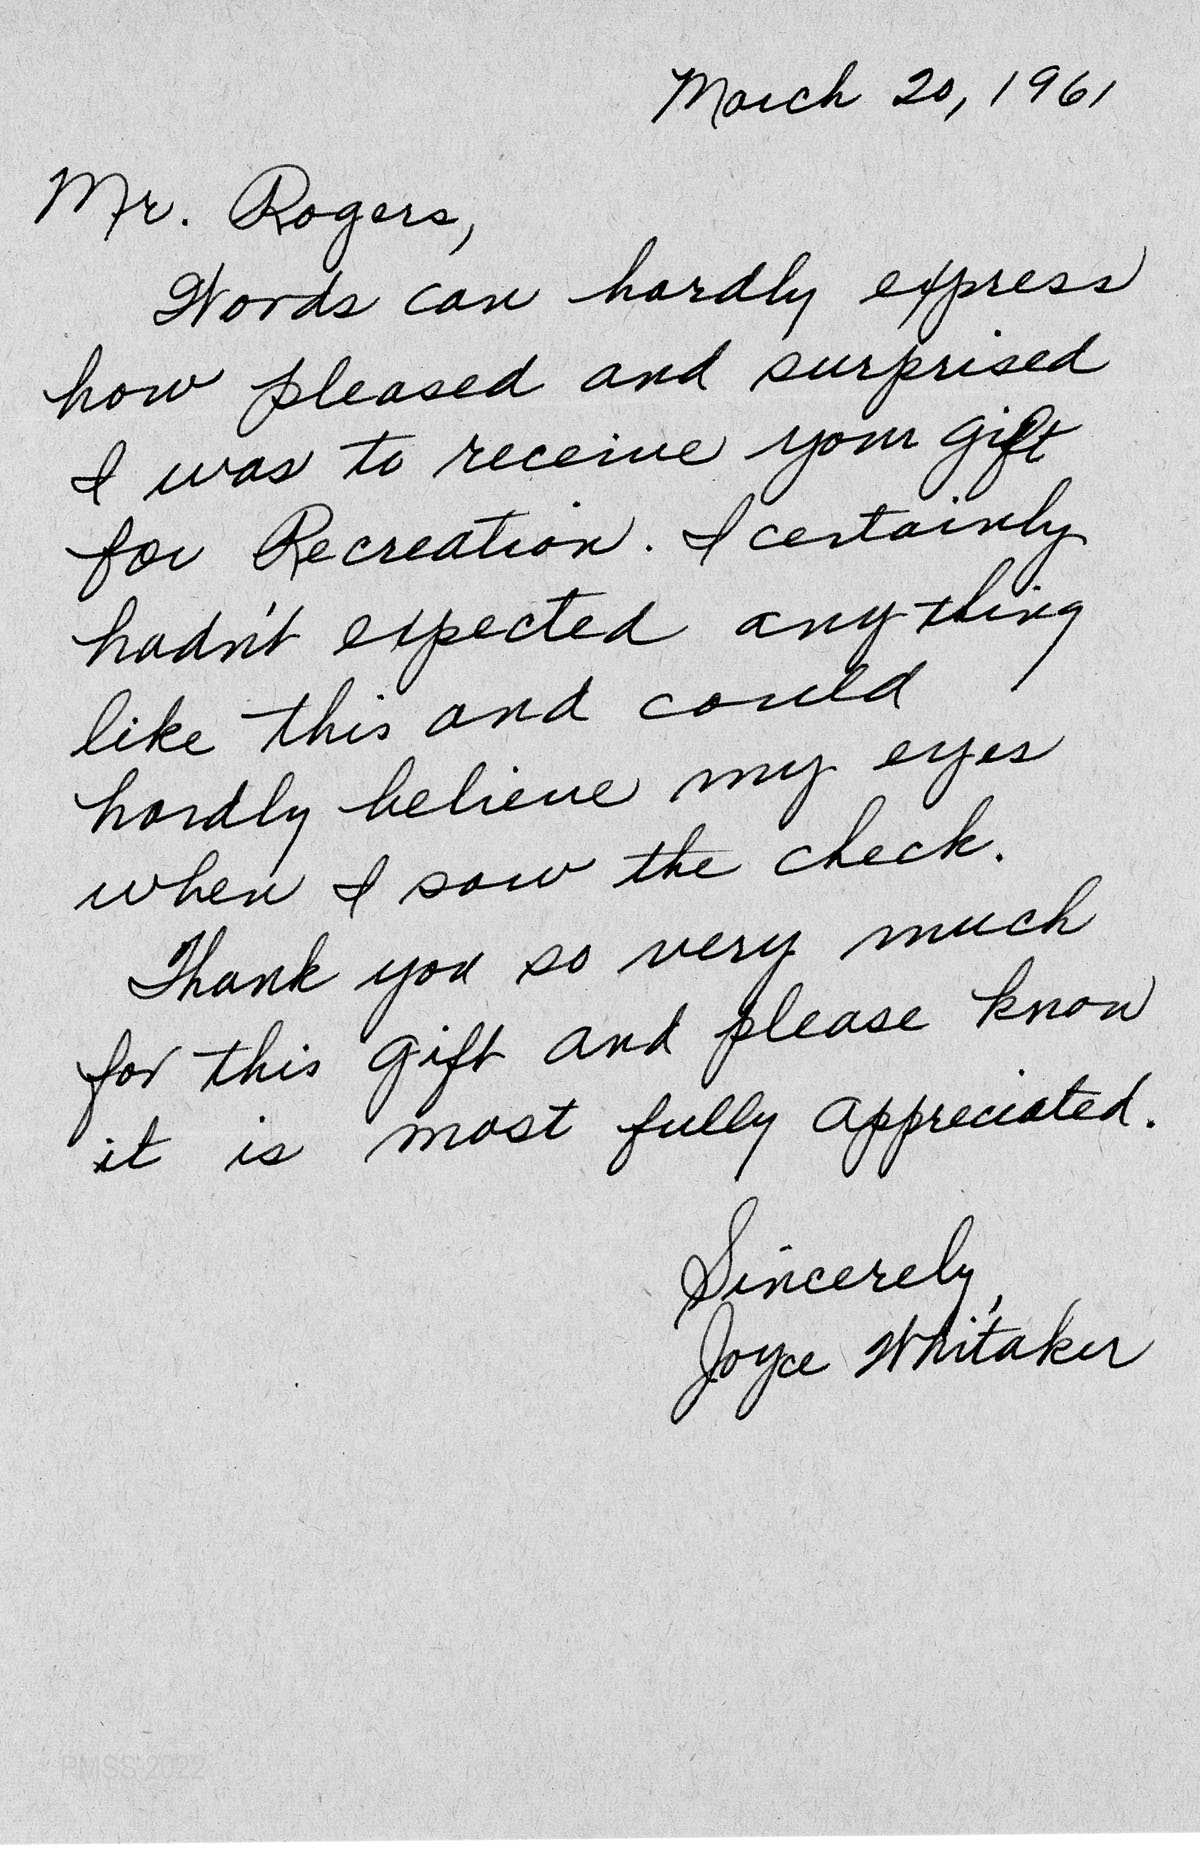 March 20, 1961
Mr. Rogers,
Words can hardly express
how pleased and surprised
I was to receive your gift
for Recreation. I certainly
hadn't expected anything
like this and could
hardly believe my eyes
when I saw the check.
Thank you so very much
for this gift and please know
it is most fully appreciated.
Sincerely,
Joyce Whitaker
PMSS 2022